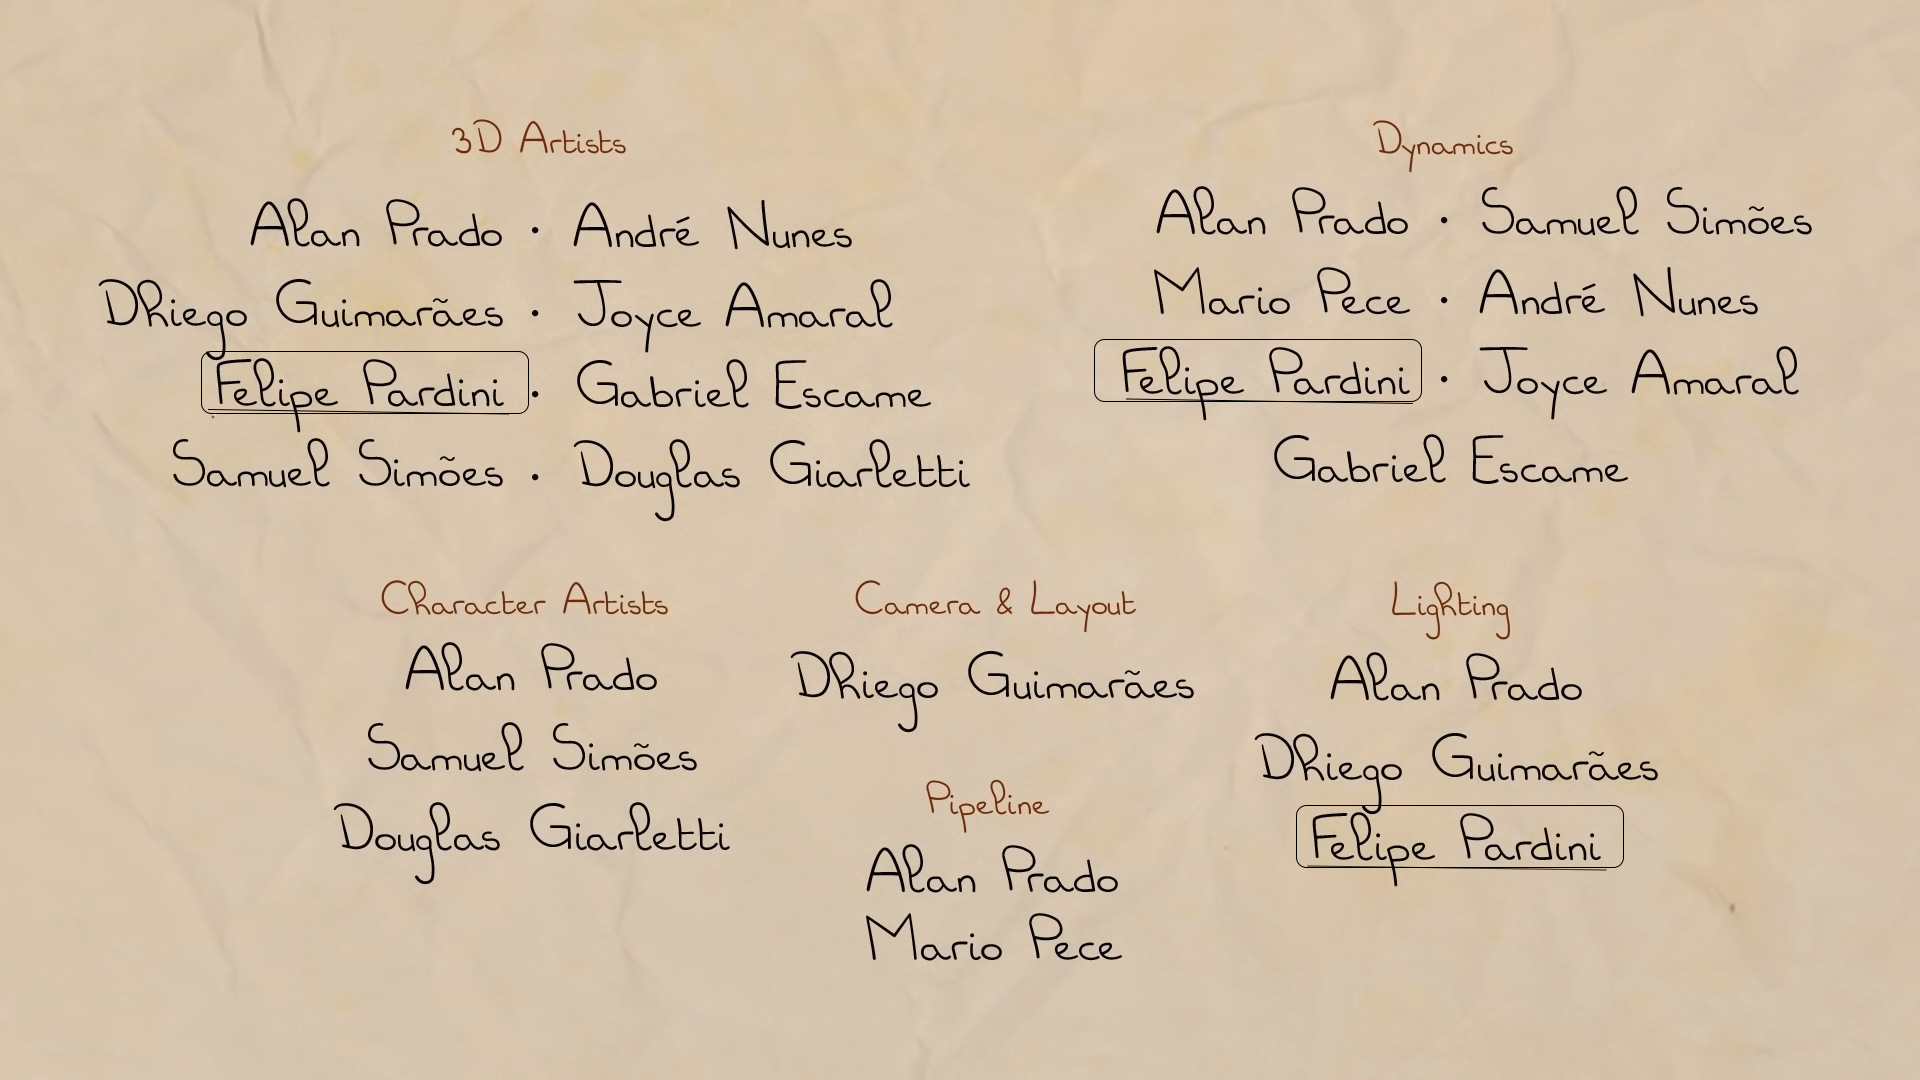 3D Artists
Alan Prado · André Nunes
Dhiego Guimarães · Joyce Amaral
Felipe Pardini · Gabriel Escame
Samuel Simões · Douglas Giarletti
Dynamics
Alan Prado · Samuel Simões
Mario Pece · André Nunes
Felipe Pardini · Joyce Amaral
Gabriel Escame
Character Artists
Alan Prado
Samuel Simões
Douglas Giarletti
Camera & Layout
Dhiego Guimarães
Pipeline
Alan Prado
Mario Pece
Lighting
Alan Prado
Dhiego Guimarães
Felipe Pardini